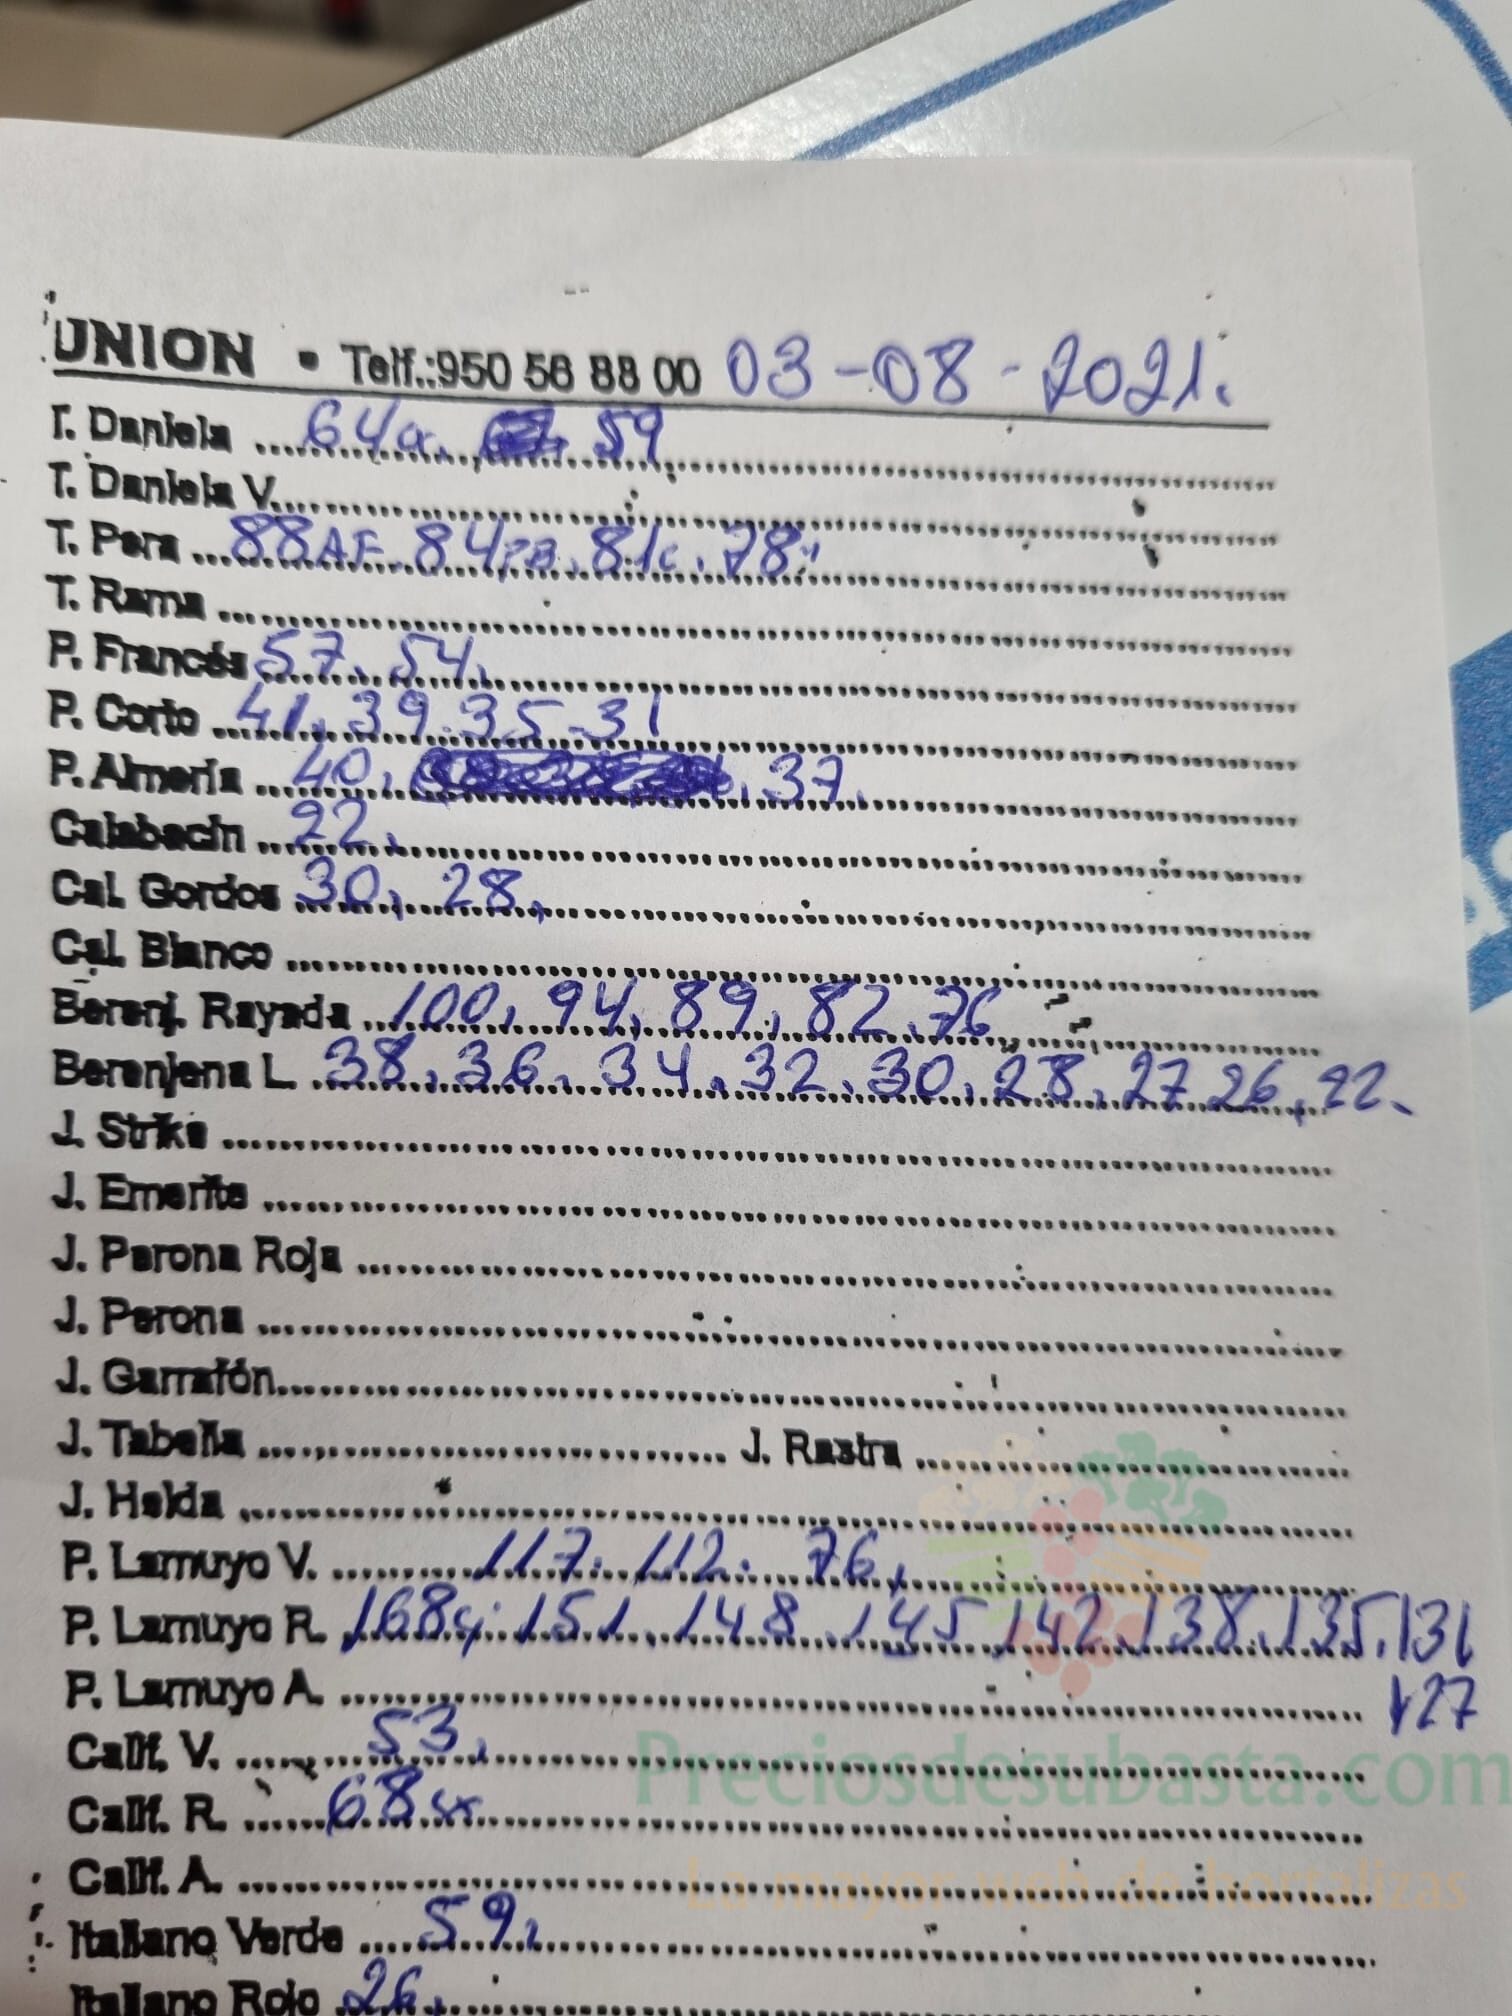 UNION • Telf.:950 56 88 00 03-08-2021.
T. Daniela 64a. 59
T. Daniela V.
T. Pera 88AF. 84PB. 81c. 78
T. Rama
P. Francés 57. 54.
P. Corto 41. 39. 35. 31
P. Almería 40. 37.
Calabacín 22.
Cal. Gordos 30, 28,
Cal. Blanco
Berenj. Rayada 100, 94, 89, 82, 76
Berenjena L. 38. 36. 34. 32. 30. 28. 27 26, 22.
J. Strike
J. Emerite
J. Perona Roja
J. Perona
J. Garrafón
J. Tabella J. Rastra
J. Helda
P. Lamuyo V. 117. 112. 76,
P. Lamuyo R. 168 151. 148. 145 142. 138. 135. 131
P. Lamuyo A. 127
Calif. V. 53,
Calif. R. 68
Calif. A.
Italiano Verde 59,
Italiano Rojo 26,
Preciosdesubasta.com
La mayor web de hortalizas